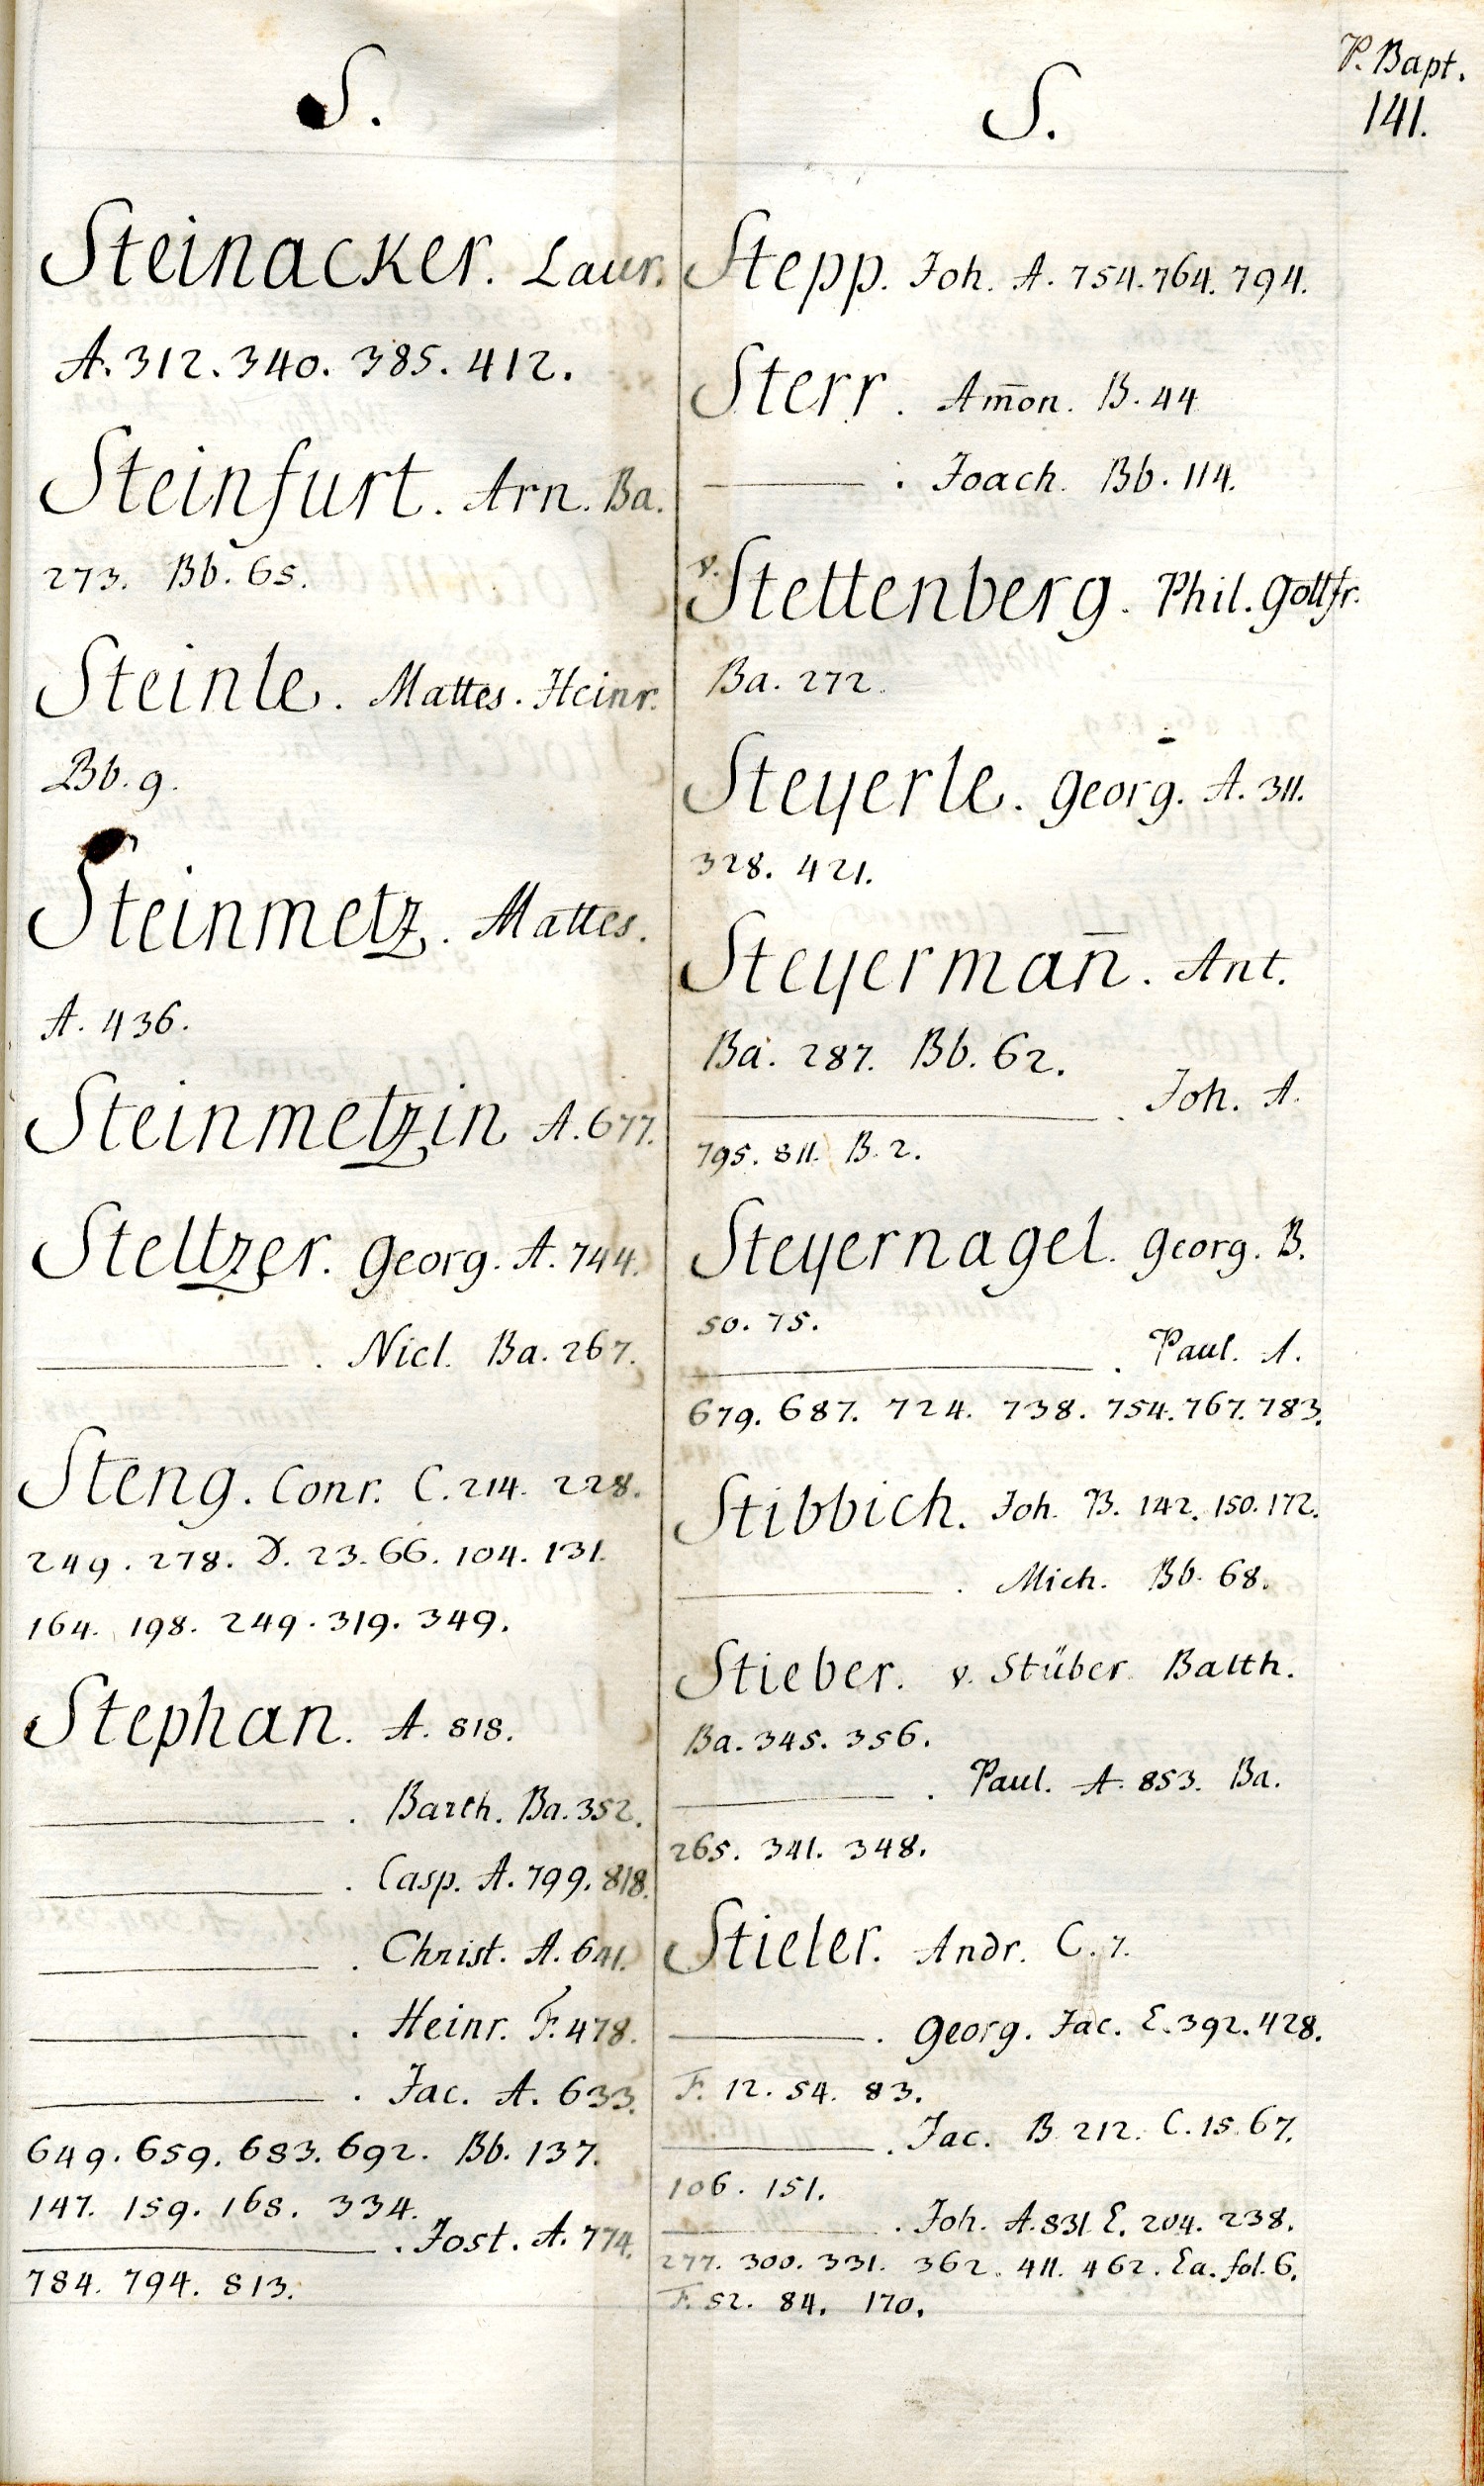 P. Bapt.
141.
S.
Steinacker. Laur.
A. 312. 340. 385. 412.
Steinfurt. Arn. Ba.
273. Bb. 65.
Steinle. Mattes. Heinr.
Bb. 9.
Steinmetz. Mattes.
A. 436.
Steinmetzin A. 677.
Steltzer. Georg. A. 744.
———. Nicl. Ba. 267.
Steng. Conr. C. 214. 228.
249. 278. D. 23. 66. 104. 131.
164. 198. 249. 319. 349.
Stephan. A. 818.
———. Barth. Ba. 352.
———. Casp. A. 799. 818.
———. Christ. A. 641.
———. Heinr. F. 478.
———. Jac. A. 633.
649. 659. 683. 692. Bb. 137.
147. 159. 168. 334.
———. Jost. A. 774.
784. 794. 813.
S.
Stepp. Joh. A. 754. 764. 794.
Sterr. Am̄on. B. 44
———. Joach. Bb. 114.
v. Stettenberg. Phil. Gottfr.
Ba. 272.
Steyerle. Georg. A. 311.
328. 421.
Steyerman̄. Ant.
Ba. 287. Bb. 62.
———. Joh. A.
795. 811. B. 2.
Steyernagel. Georg. B.
50. 75.
———. Paul. A.
679. 687. 724. 738. 754. 767. 783.
Stibbich. Joh. B. 142. 150. 172.
———. Mich. Bb. 68.
Stieber. v. Stüber Balth.
Ba. 345. 356.
———. Paul. A. 853. Ba.
265. 341. 348.
Stieler. Andr. C. 7.
———. Georg. Jac. E. 392. 428.
F. 12. 54. 83.
———. Jac. B. 212. C. 15. 67.
106. 151.
———. Joh. A. 831 E. 204. 238.
277. 300. 331. 362. 411. 462. Ea. fol. 6.
F. 52. 84. 170.